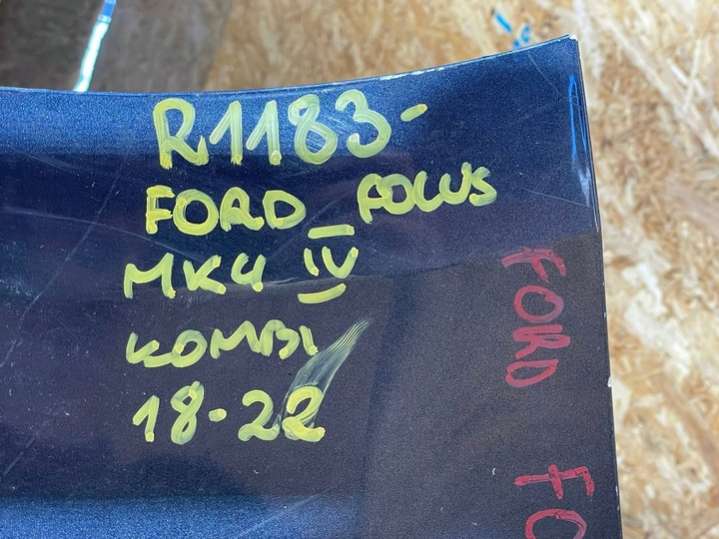 R1183-
FORD FOCUS
MK4 IV
KOMBI
18-22
FORD
FO